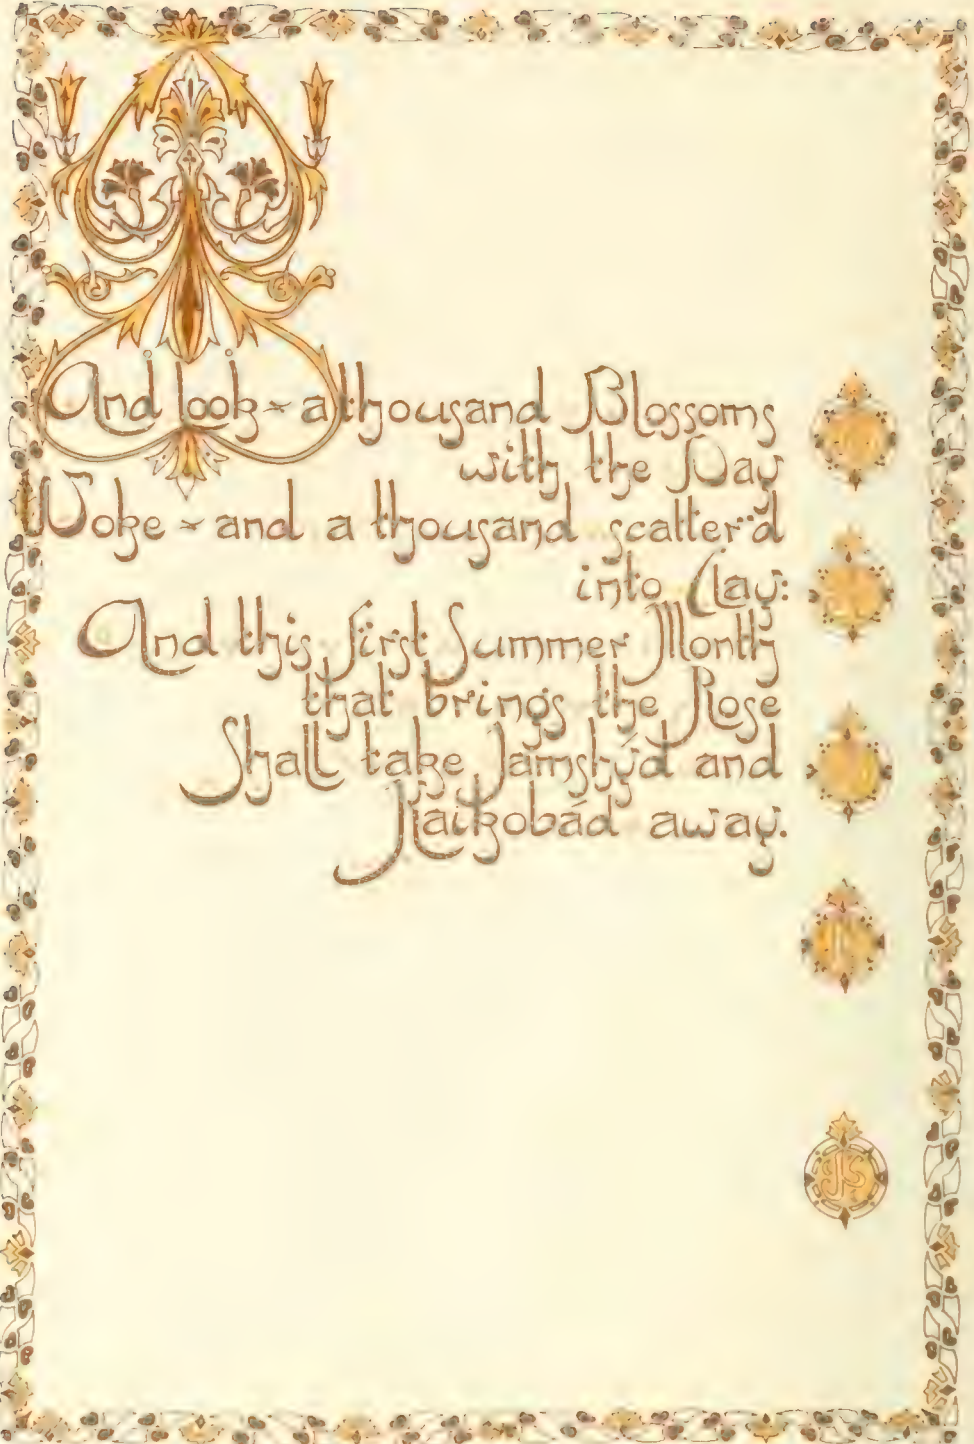 And look - a thousand Blossoms
with the Day
Woke - and a thousand scatter'd
into Clay:
And this first Summer Month
that brings the Rose
Shall take Jamshýd and
Kaikobád away.
JS